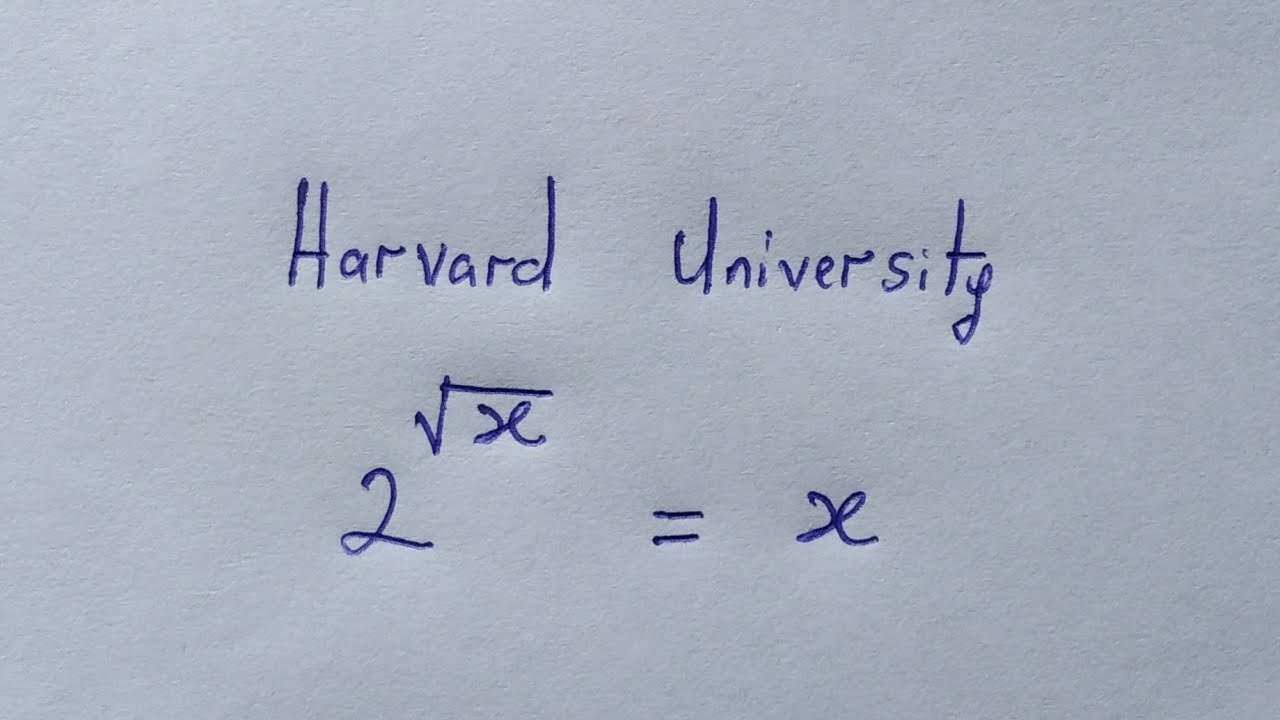 Harvard University
2^√x = x